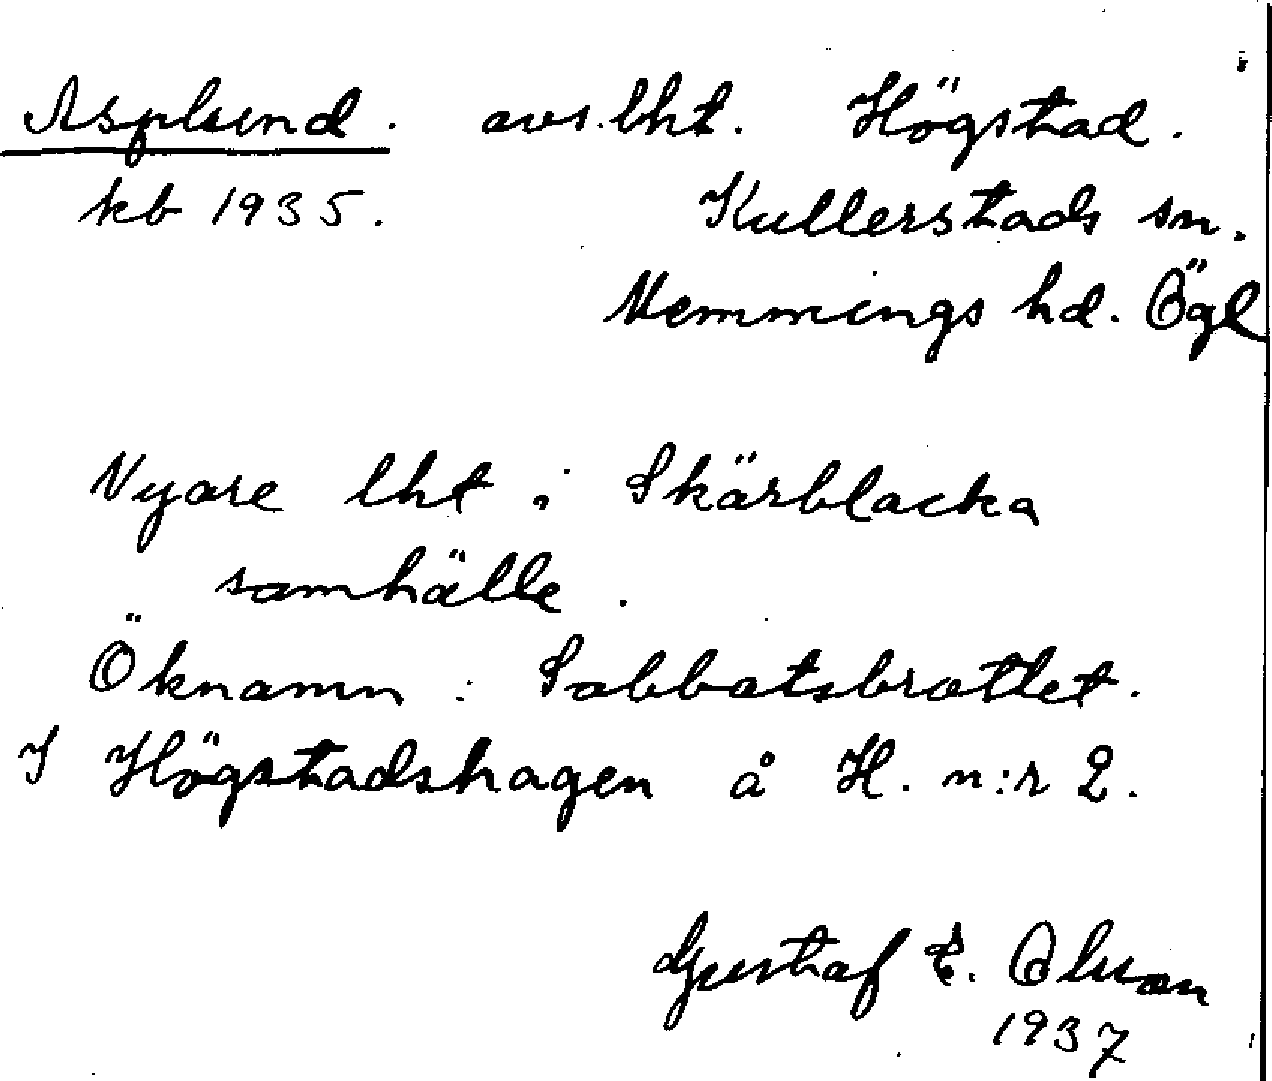 Asplund. avs. lht. Högstad.
kb 1935. Kullerstads sn.
Memmings hd. Ögl
Nyare lht i Skärblacka
samhälle.
Öknamn: Sabbatsbrottet.
I Högstadshagen å H. n:r 2.
Gustaf E. Olson
1937